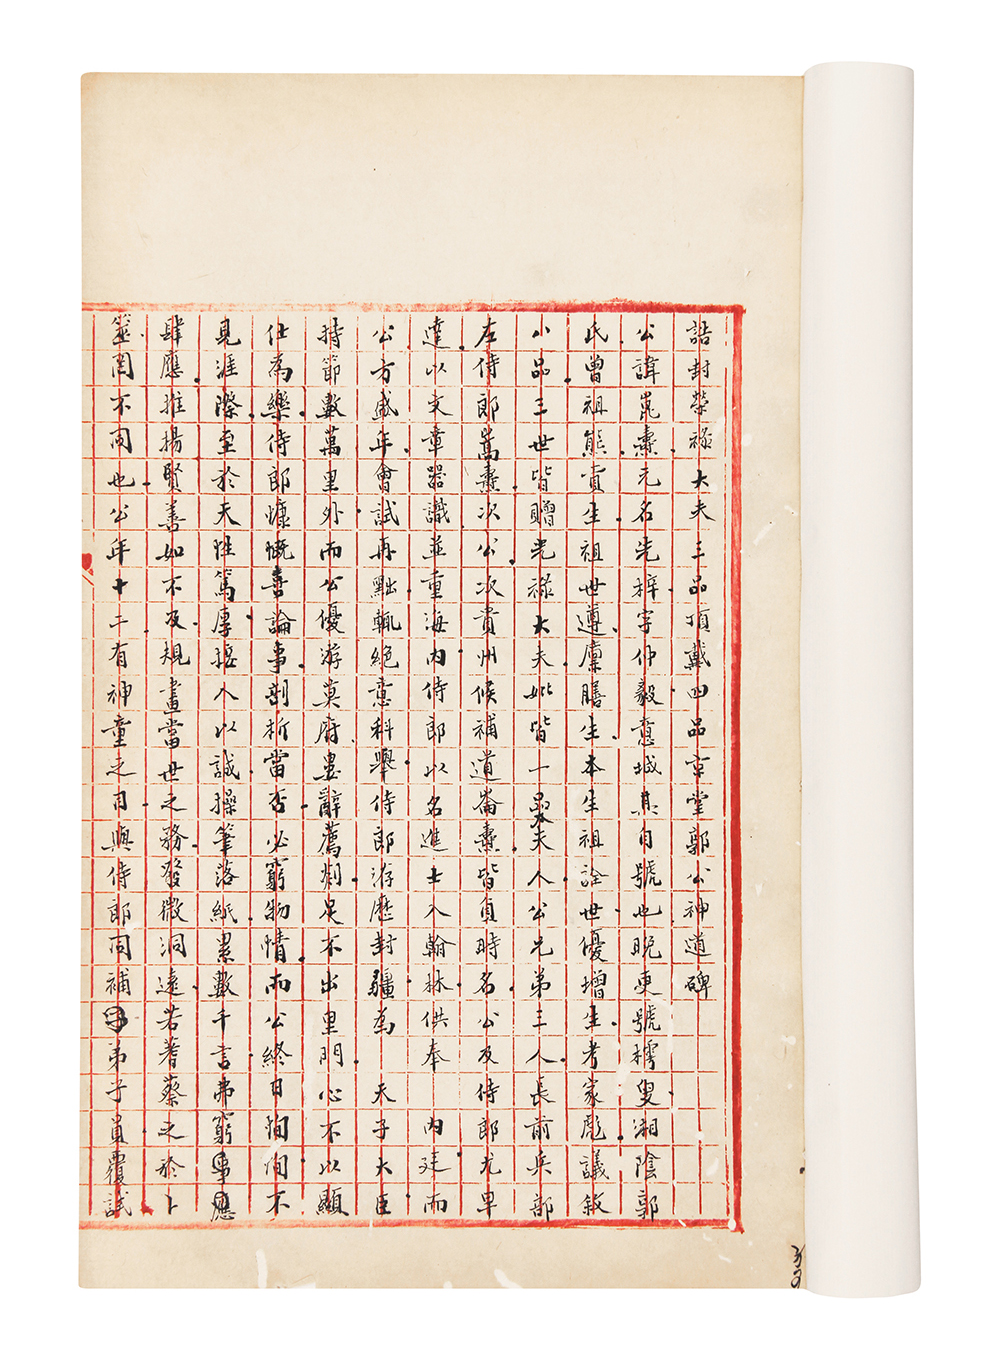 誥封榮祿大夫三品頂戴四品京堂郭公神道碑
公諱崑燾元名先梓字仲毅意城其自號也晚更號樗叟湘陰郭
氏曾祖熊賁生祖世遵廩膳生本生祖詮世優增生考家彪議敘
小品三世皆贈光祿大夫妣皆一品夫人公兄弟三人長前兵部
左侍郎嵩燾次公次貴州候補道崙燾皆負時名公及侍郎尤卑
達以文章器識並重海內侍郎以名進士入翰林供奉 內廷而
公方盛年會試再黜輒絕意科舉侍郎游歷封疆為 天子大臣
持節數萬里外而公優游莫府婁辭薦剡足不出里門心不以顯
仕為樂侍郎慷慨喜論事剖析當否必窮物情而公終日恂恂不
見涯際至於天性篤厚接人以誠操筆落紙累數千言弗窮事應
肆應推揚賢善如不及規畫當世之務發微洞遠若蓍蔡之於卜
筮罔不同也公年十二有神童之目與侍郎同補 弟子員覆試